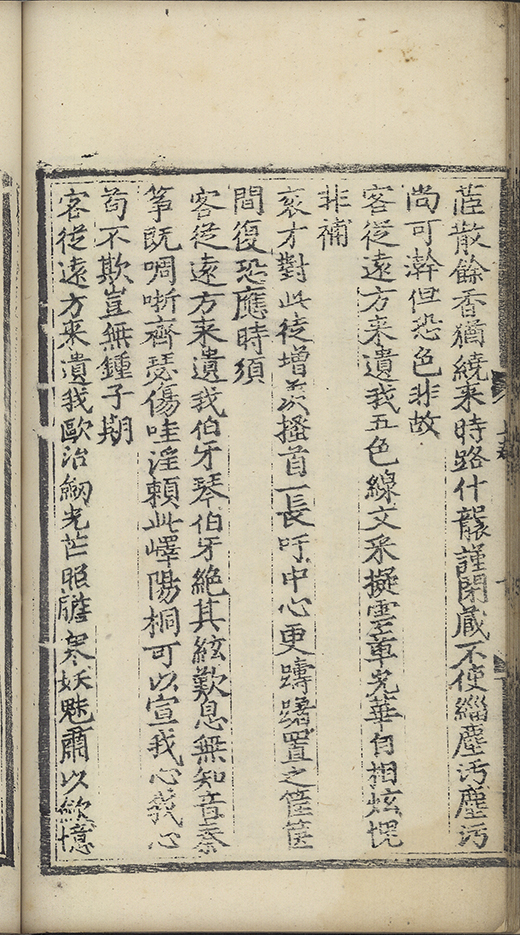 茝散餘香猶繞来時路什襲謹閉蔵不使緇塵汚塵汚
尚可澣但恐色非故
客從遠方来遺我五色線文采擬雲章光華自相炫愰
非補
衮才對此徒增羡搔首一長吁中心更躊躇置之篋筐
間復恐應時須
客從遠方来遺我伯牙琴伯牙絶其絃歎息無知音秦
筝既啁哳齊瑟傷哇淫頼此嶧陽桐可以宣我心我心
苟不欺豈無鍾子期
客從遠方来遺我歐冶劒光芒照膽寒妖魅肅以歛憶